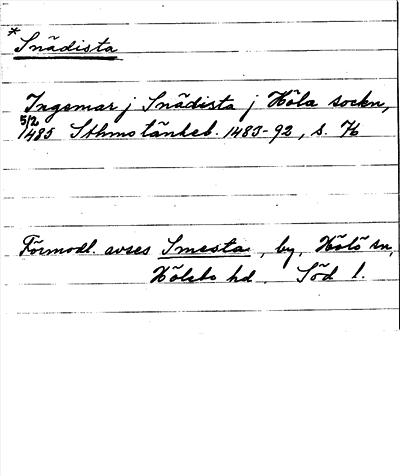 *Snädista
Ingemar j Snädista j Höla sockn,
5/2 1485 Sthms tänkeb. 1483-92, s. 76
Förmodl. avses Smesta, by, Hölö sn,
Hölebo hd. Söd l.